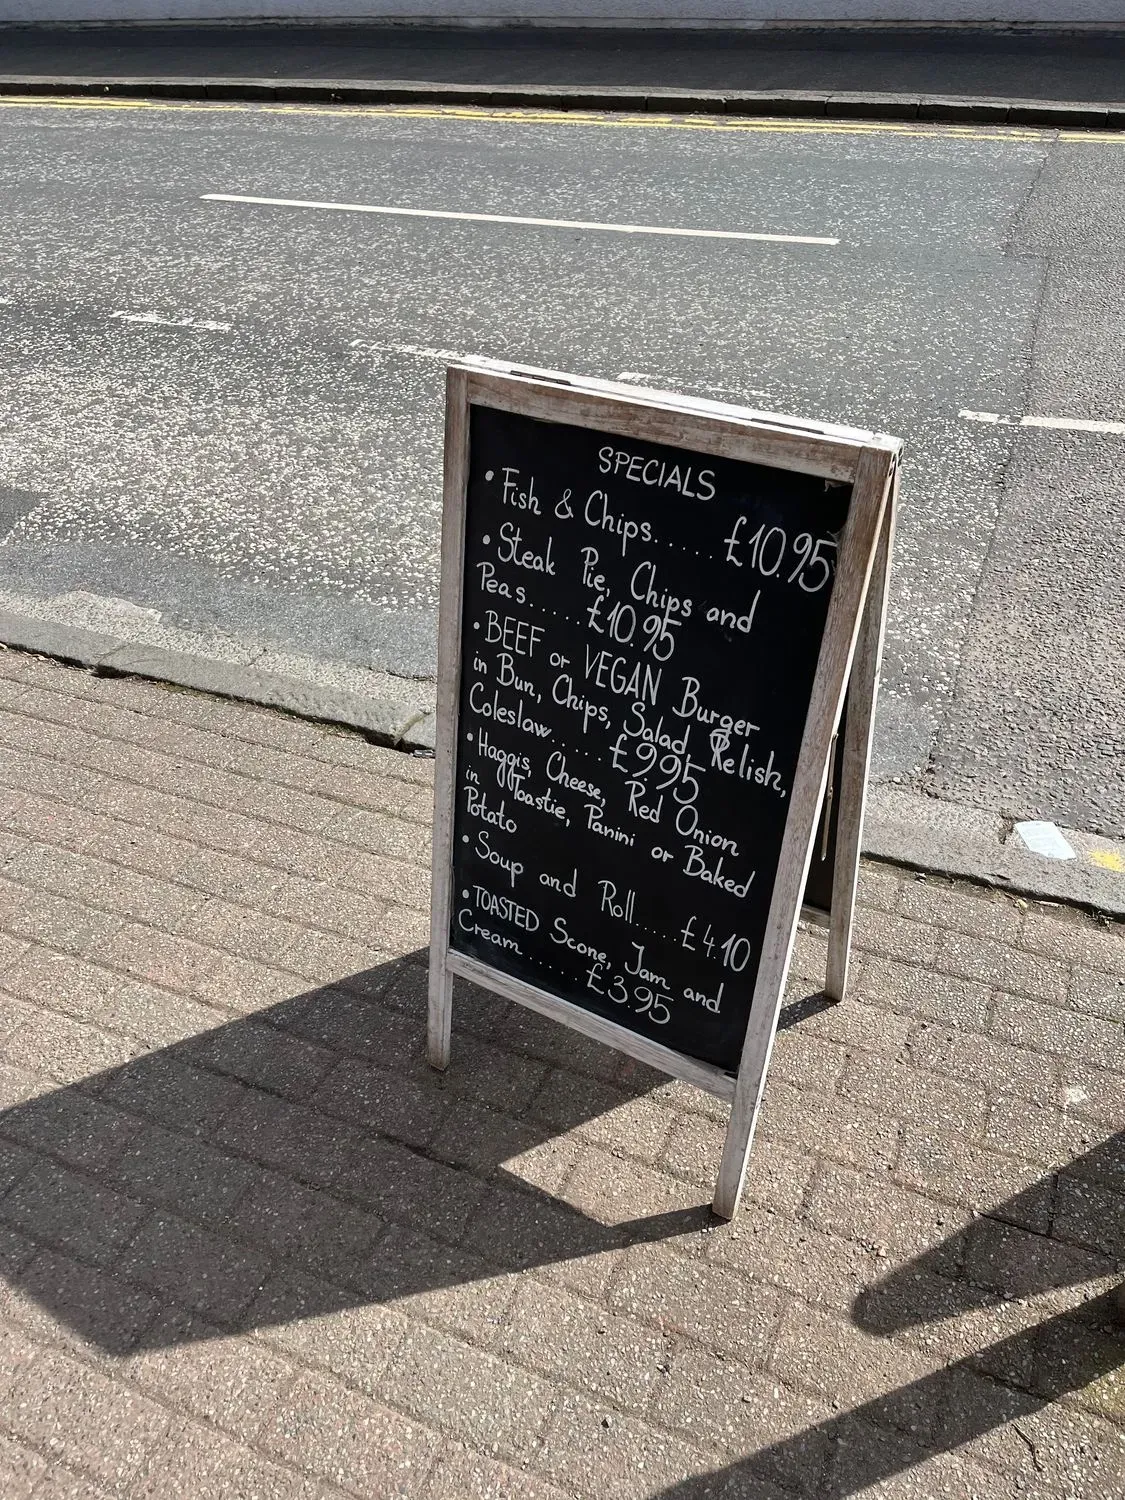 SPECIALS
• Fish & Chips...... £10.95
• Steak Pie, Chips and
Peas..... £10.95
• BEEF or VEGAN Burger
in Bun, Chips, Salad, Relish,
Coleslaw..... £9.95
• Haggis, Cheese, Red Onion
in Toastie, Panini or Baked
Potato
• Soup and Roll...... £4.10
• TOASTED Scone, Jam and
Cream...... £3.95